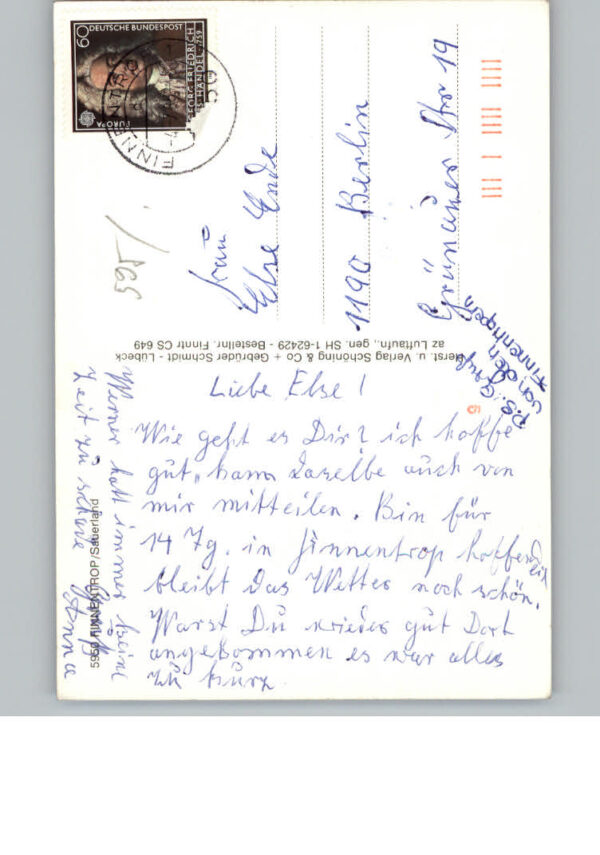 Liebe Else!
Wie geht es Dir? ich hoffe
gut, kann dazelbe auch von
mir mitteilen. Bin für
14 Tg. in Finnentrop hoffe
bleibt das Wetter noch schön.
Warst Du wieder gut Dort
angekommen es war alles
zu kurz.
Werner hatt immer keine
Zeit zu schreiben
Gruß
Anna
P.S. Gruß
von den
Finnenhopern
Frau
Else Ende
1190 Berlin
Grünauer Str 19
595/
DEUTSCHE BUNDESPOST
60
GEORG FRIEDRICH
HÄNDEL
EUROPA
FINNENTROP
Herst. u. Verlag Schöning & Co + Gebrüder Schmidt - Lübeck
az Luftaufn., gen. SH 1-62429 - Bestellnr. Finntr CS 649
5950 FINNENTROP/Sauerland